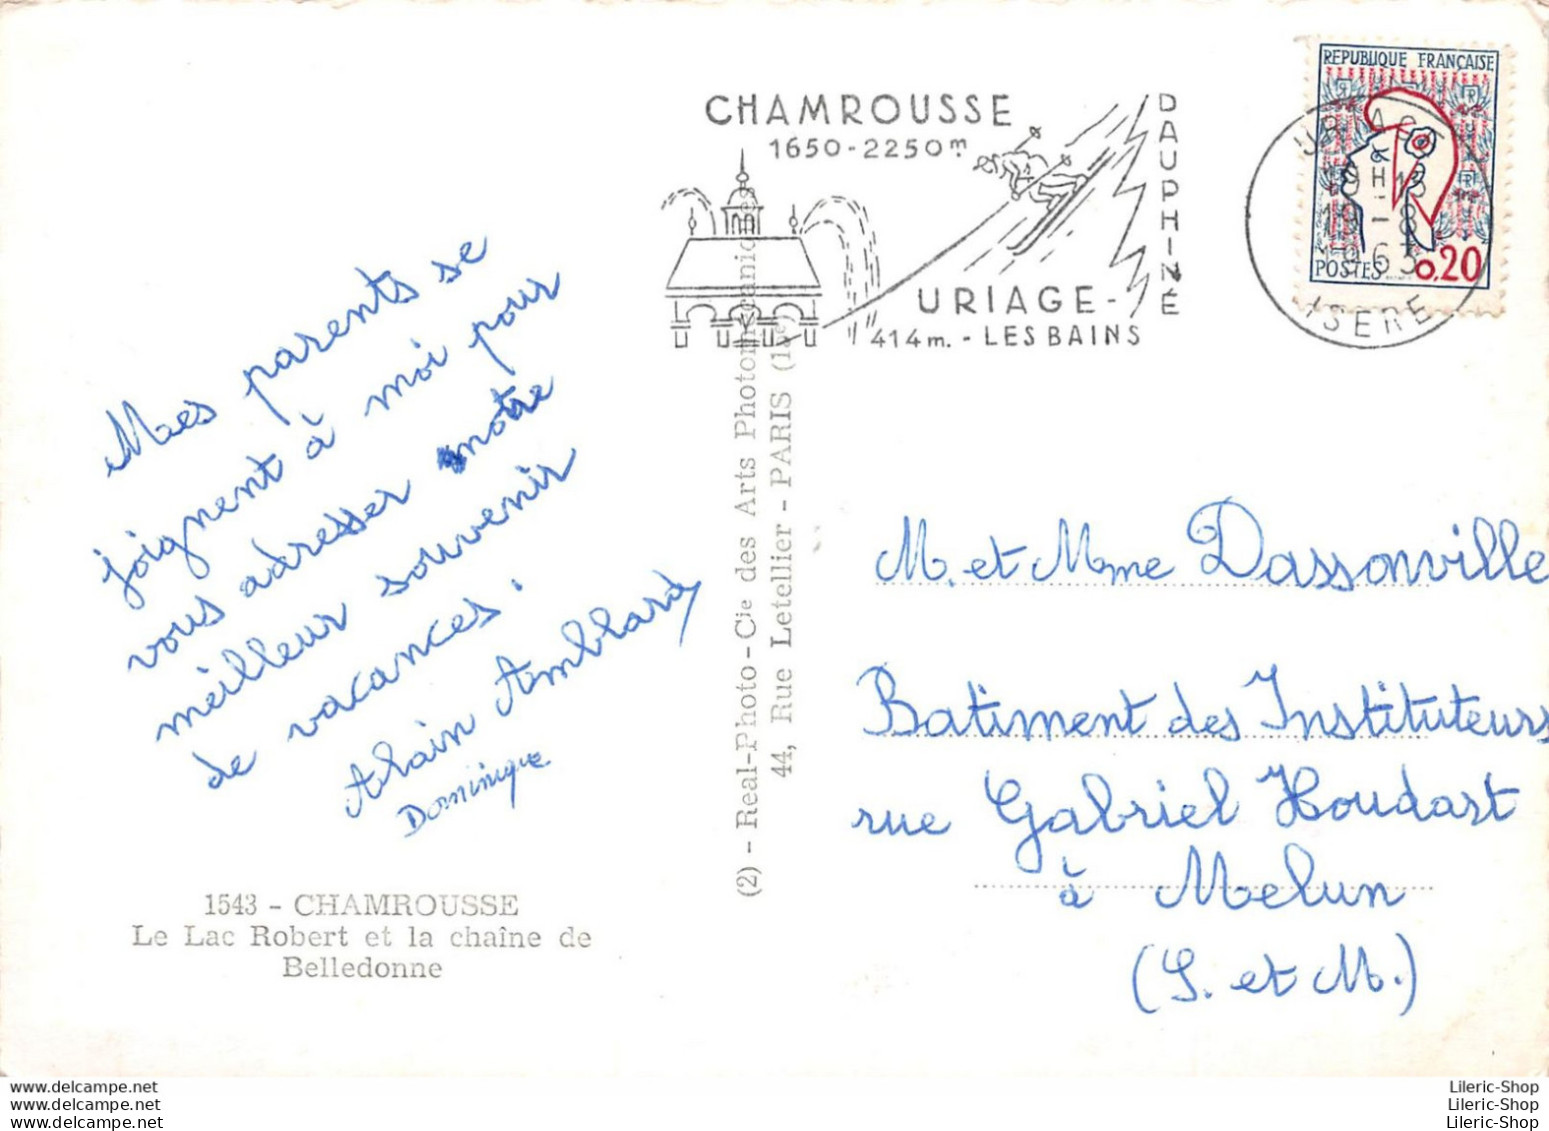 CHAMROUSSE
1650-2250m
DAUPHINÉ
URIAGE-
414m. - LES BAINS
REPUBLIQUE FRANÇAISE
POSTES 0,20
URIAGE
19H15
19-8
1963
ISERE
Mes parents se
joignent à moi pour
vous adresser notre
meilleur souvenir
de vacances.
Alain Amblard
Dominique
1543 - CHAMROUSSE
Le Lac Robert et la chaîne de
Belledonne
(2) - Real-Photo - Cie des Arts Photomécaniques
44, Rue Letellier - PARIS (15e)
M. et Mme Dassonville
Batiment des Instituteurs
rue Gabriel Houdart
à Melun
(S. et M.)
www.delcampe.net
www.delcampe.net
www.delcampe.net
Lileric-Shop
Lileric-Shop
Lileric-Shop